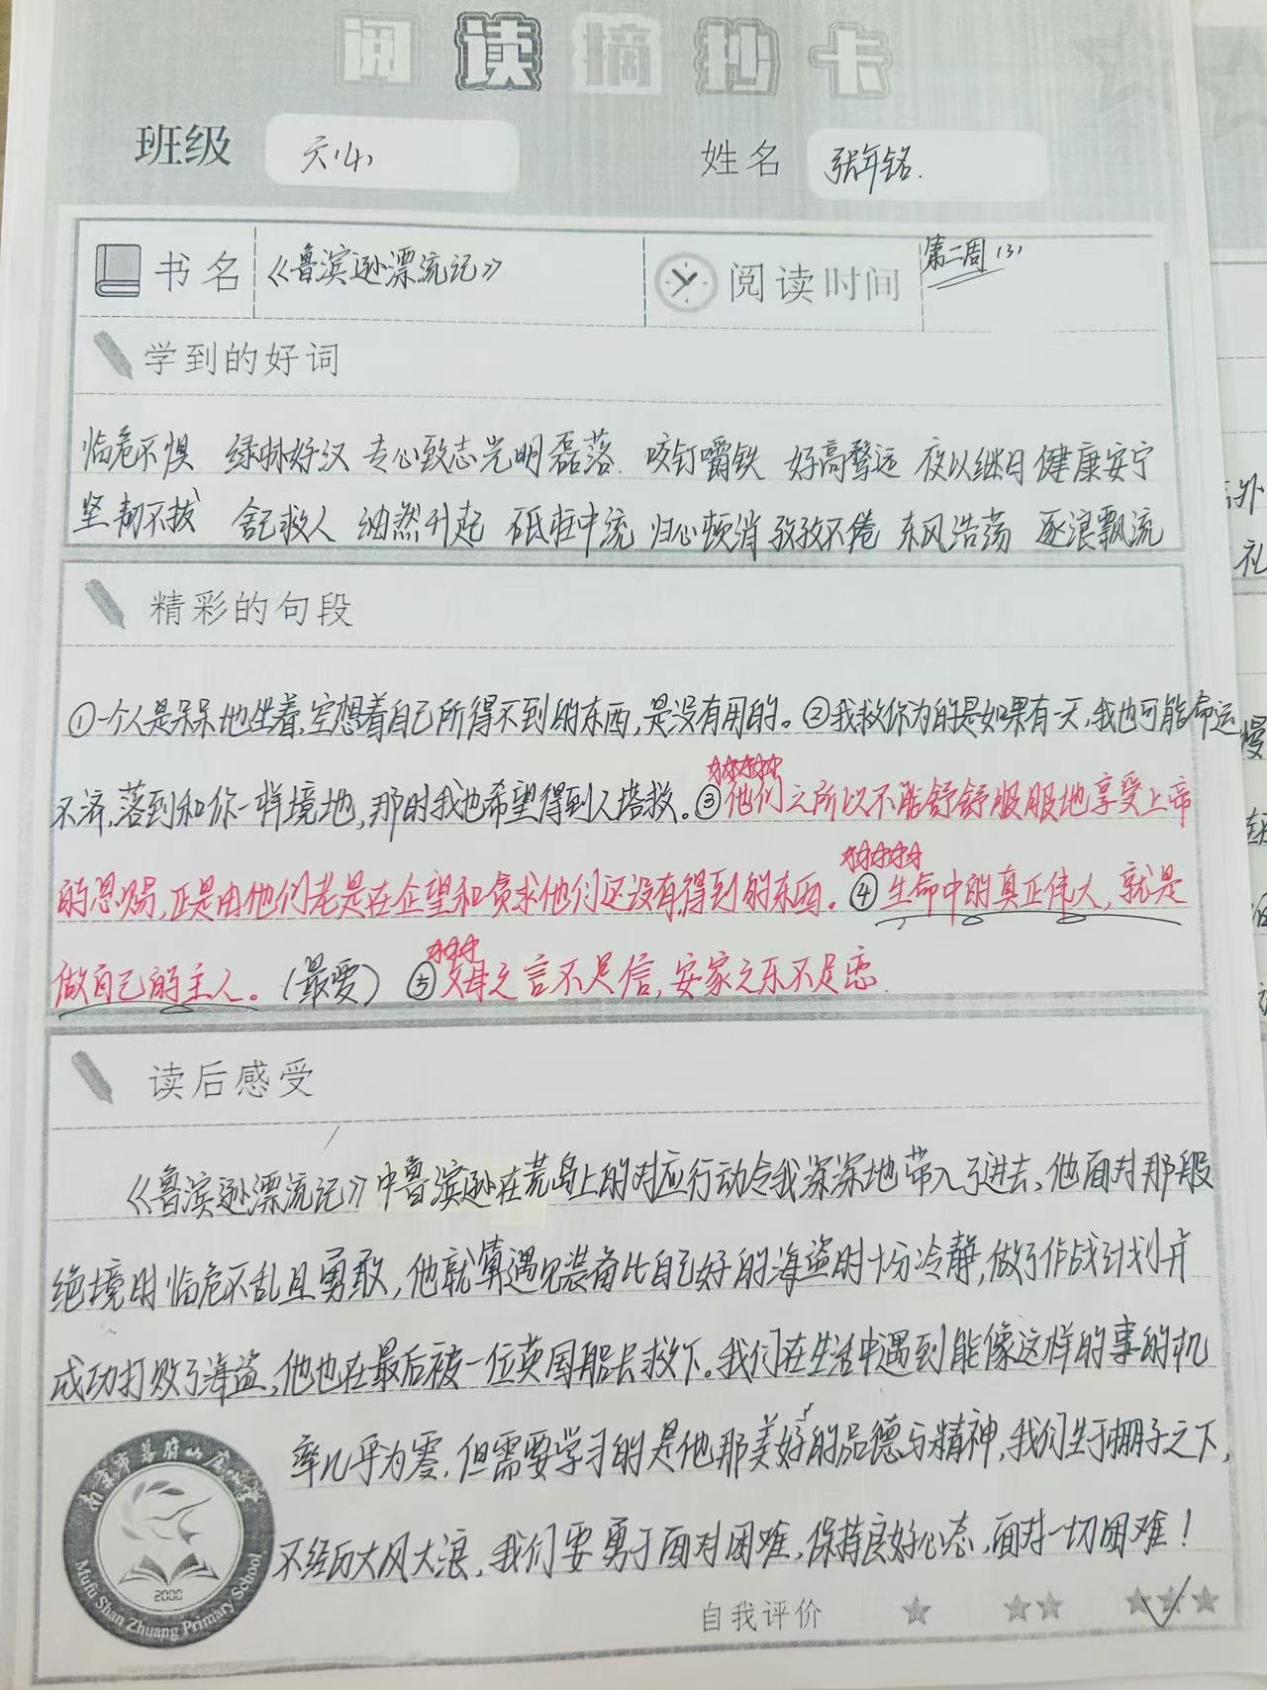 阅读摘抄卡
班级 六(4) 姓名 张年铭.
书名 《鲁滨逊漂流记》 阅读时间 第二周(3)
学到的好词
临危不惧 绿林好汉 专心致志 光明磊落. 咬钉嚼铁 好高骛远 夜以继日 健康安宁
坚韧不拔 舍己救人 油然升起 砥柱中流 归心顿消 孜孜不倦 东风浩荡 逐浪飘流
精彩的句段
①一个人是呆呆地坐着,空想着自己所得不到的东西,是没有用的。②我救你为的是如果有一天,我也可能命运
不济,落到和你一样境地,那时我也希望得到人搭救。③他们之所以不能舒舒服服地享受上帝
的恩赐,正是由他们老是在企望和贪求他们还没有得到的东西。④生命中的真正伟人,就是
做自己的主人。(最爱) ⑤父母之言不足信,安家之乐不足恋.
读后感受
《鲁滨逊漂流记》中鲁滨逊在荒岛上的对应行动令我深深地带入了进去,他面对那段
绝境时临危不乱且勇敢,他就算遇见装备比自己好的海盗时十分冷静,做了作战计划并
成功打败了海盗,他也在最后被一位英国船长救下。我们在生活中遇到能像这样的事的机
率几乎为零,但需要学习的是他那美好的品德与精神,我们生于棚子之下,
不经历大风大浪,我们要勇于面对困难,保持良好心态,面对一切困难!
南京市幕府山庄小学
2000
Mufu Shan Zhuang Primary School
自我评价
外
礼
慢